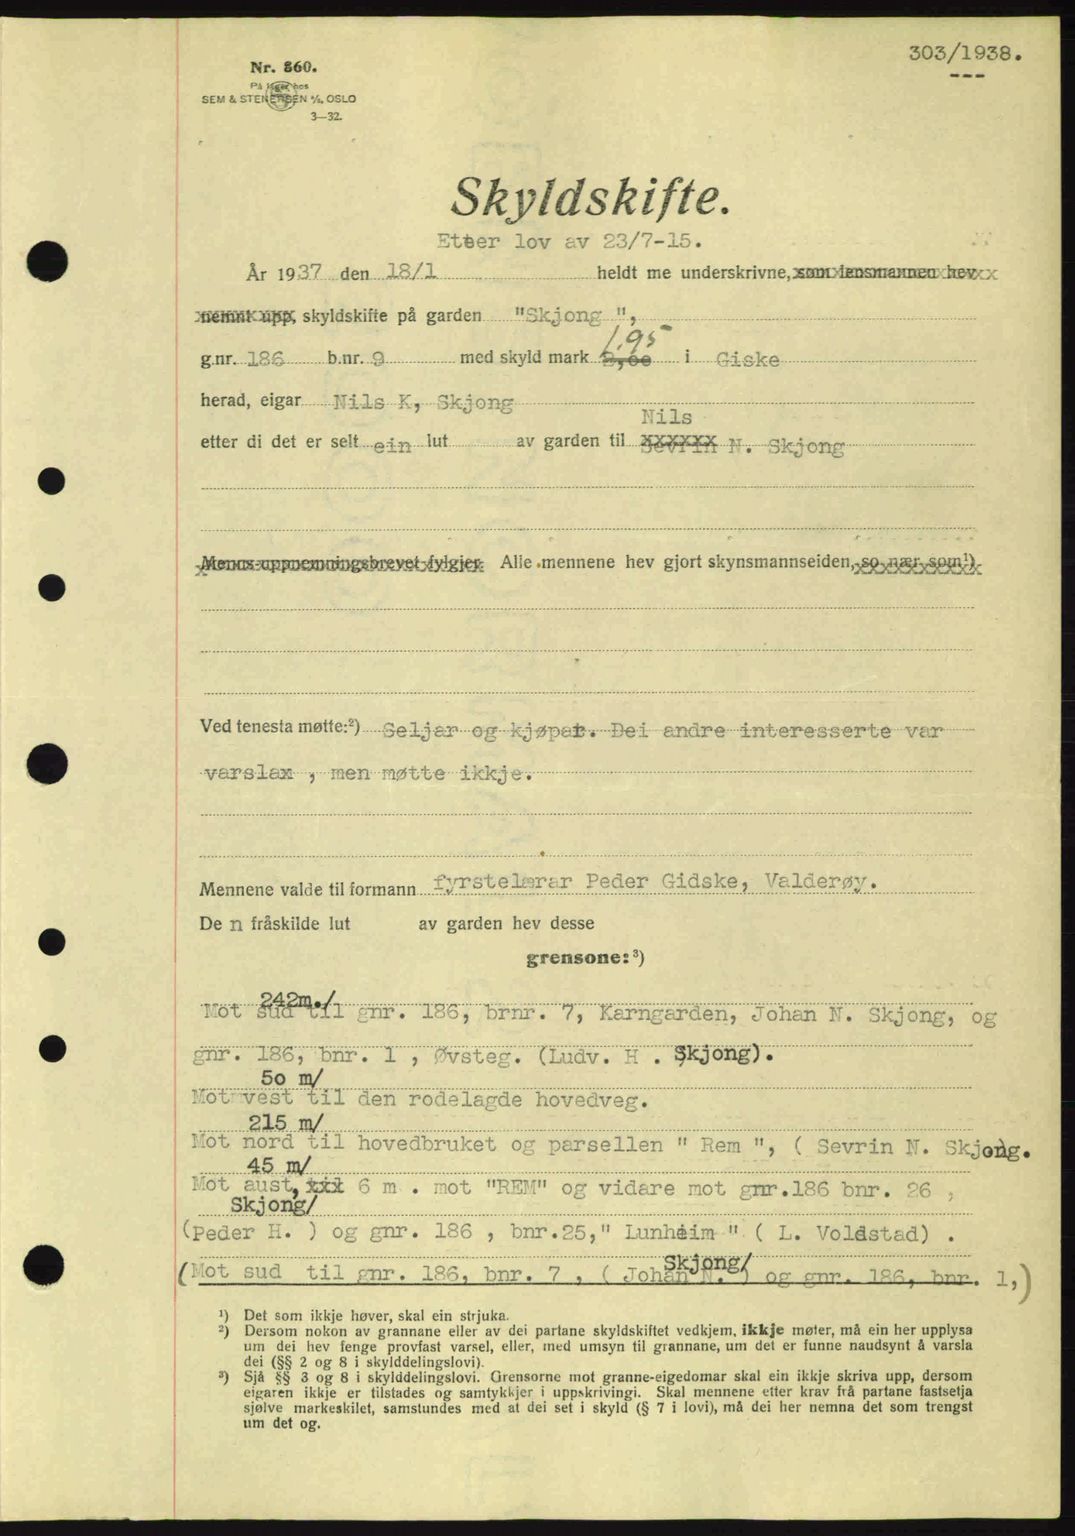 303/1938.
Nr. 860.
På lager hos
SEM & STENERSEN A/S, OSLO
3—32.
Skyldskifte.
Etter lov av 23/7-15.
År 1937 den 18/1 heldt me underskrivne, som lensmannen hev
nemnt upp, skyldskifte på garden "Skjong ",
1,95
g.nr. 186 b.nr. 9 med skyld mark i Giske
herad, eigar Nils K, Skjong
Nils
etter di det er selt ein lut av garden til Sevrin N. Skjong
Menns-uppnemningsbrevet fylgjer. Alle mennene hev gjort skynsmannseiden, so nær som¹)
Ved tenesta møtte:²) Seljar og kjøpar. Dei andre interesserte var
varsla , men møtte ikkje.
Mennene valde til formann fyrstelærar Peder Gidske, Valderøy.
De n fråskilde lut av garden hev desse
grensone:³)
242m./
Mot sud til gnr. 186, brnr. 7, Karngarden, Johan N. Skjong, og
gnr. 186, bnr. 1 , Øvsteg. (Ludv. H . Skjong).
50 m/
Mot vest til den rodelagde hovedveg.
215 m/
Mot nord til hovedbruket og parsellen " Rem ", ( Sevrin N. Skjong.
45 m/
Mot aust, xxx 6 m . mot "REM" og vidare mot gnr.186 bnr. 26 ,
Skjong/
(Peder H. ) og gnr. 186 , bnr.25," Lunheim " ( L. Voldstad) .
Skjong/
(Mot sud til gnr. 186, bnr. 7 , ( Johan N. ) og gnr. 186, bnr. 1,)
¹) Det som ikkje høver, skal ein strjuka.
²) Dersom nokon av grannane eller av dei partane skyldskiftet vedkjem, ikkje møter, må ein her upplysa
um dei hev fenge provfast varsel, eller, med umsyn til grannane, um det er funne naudsynt å varsla
dei (§§ 2 og 8 i skylddelingslovi).
³) Sjå §§ 3 og 8 i skylddelingslovi. Grensorne mot granne-eigedomar skal ein ikkje skriva upp, dersom
eigaren ikkje er tilstades og samtykkjer i uppskrivingi. Skal mennene etter krav frå partane fastsetja
sjølve markeskilet, samstundes med at dei set i skyld (§ 7 i lovi), må dei her nemna det som trengst
um det og.